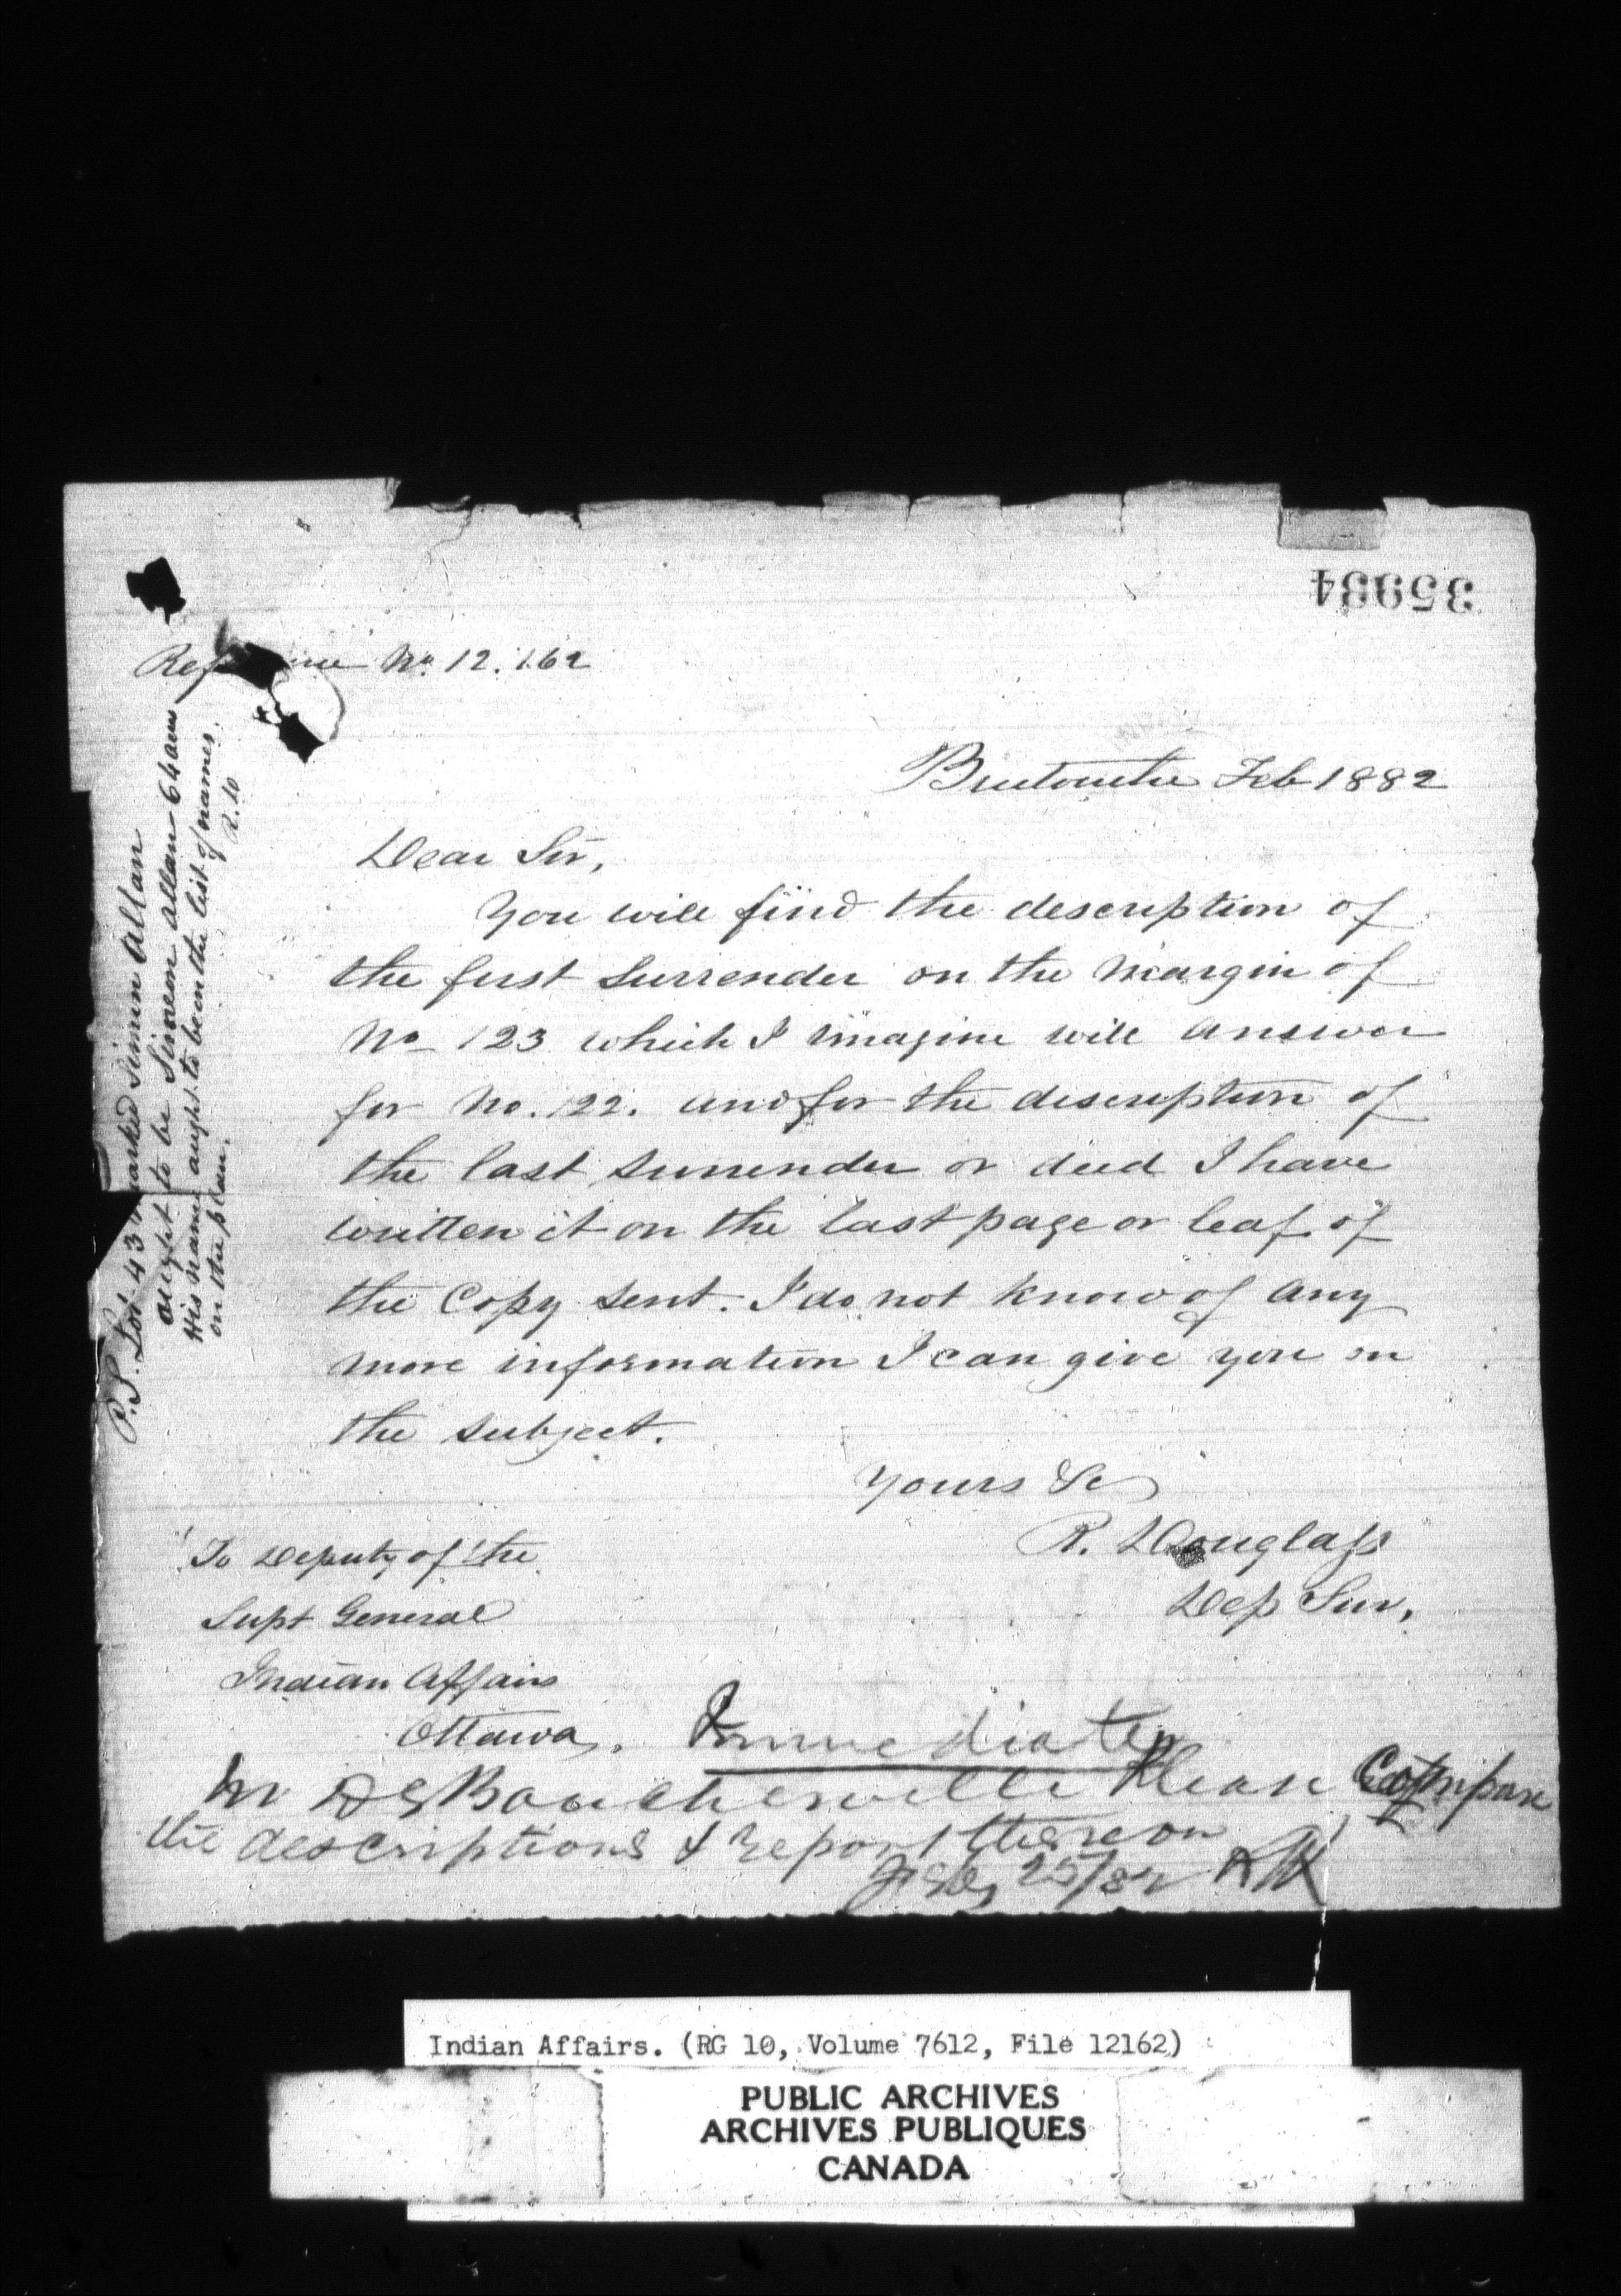 35934
Reference No. 12.162
Buctouche Feb 1882
Dear Sir,
You will find the description of
the first Surrender on the Margin of
No 123 which I imagine will answer
for No. 122. and for the description of
the last Surrender or deed I have
written it on the last page or leaf of
the Copy sent. I do not know of any
more information I can give you on
the subject.
Yours &c
R. Douglass
Dep Sur.
To Deputy of the
Supt General
Indian Affairs
Ottawa.
P.S. Lot 43 marked Simon Allan
ought to be Simeon Allan 64 acres
His name aught to be in the list of names
on the plan.
R. D
Immediate
Mr De Boucherville Please Compare
the descriptions & report thereon
25/82
Indian Affairs. (RG 10, Volume 7612, File 12162)
PUBLIC ARCHIVES
ARCHIVES PUBLIQUES
CANADA